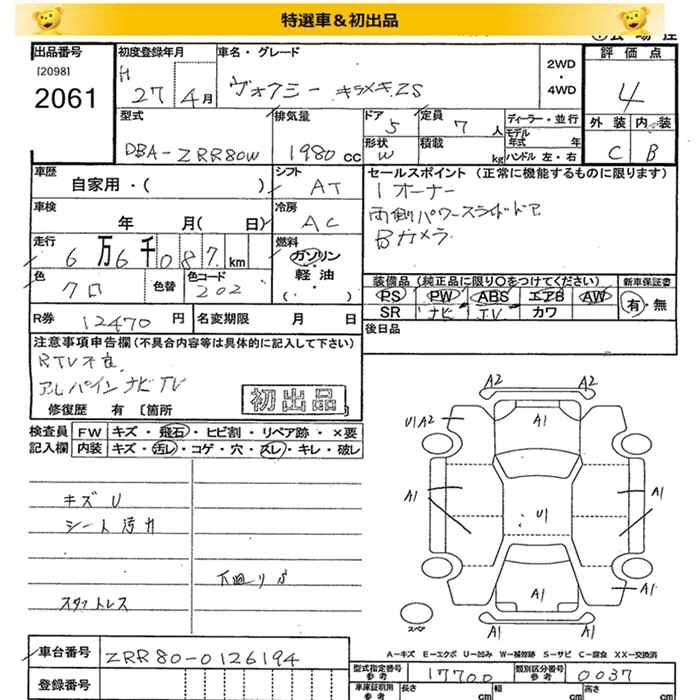 特選車&初出品
出品番号
[2098]
2061
初度登録年月
H 27 4月
車名・グレード
ヴォクシー キラメキZS
2WD
・
4WD
評価点
4
外装 内装
C B
型式
DBA-ZRR80W
排気量
1980 cc
ドア 5
定員 7 人
形状 W
積載 kg
ディーラー・並行
モデル年式 年
ハンドル 左・右
車歴
自家用・( )
シフト
AT
車検
年 月( 日)
冷房
AC
走行
6万6千087km
燃料
ガソリン・軽油
・( )
色
クロ
色替
色コード
202
R券 12470 円
名変期限 月 日
セールスポイント (正常に機能するものに限ります)
1オーナー
両側パワースライドドア
Bカメラ
装備品 (純正品に限り○をつけてください)
PS PW ABS エアB AW
SR ナビ TV カワ
新車保証書
有・無
後日品
注意事項申告欄 (不具合内容等は具体的に記入して下さい)
RTV不良
アルパインナビTV
初出品
修復歴 有 [箇所 ]
検査員記入欄
FW キズ・飛石・ヒビ割・リペア跡・×要
内装 キズ・汚レ・コゲ・穴・スレ・キレ・破レ
キズU
シート汚れ
下廻りサ
スタットレス
A2 A2
U1A2 A1
A1 U1 A1
A1 A1
A1 A1
スペア
A-キズ E-エクボ U-凹み W-補修跡 S-サビ C-腐食 XX-交換済
車台番号 ZRR80-0126194
登録番号
型式指定番号参考 17700
類別区分番号参考 0037
車庫証明用参考 長さ cm 幅 cm 高さ cm